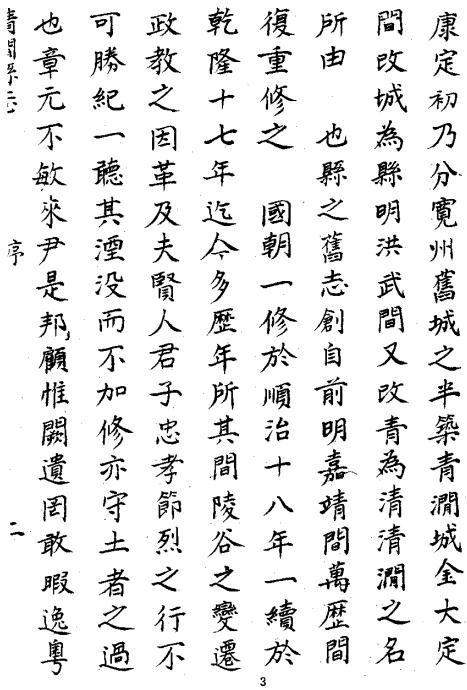 康定初乃分寬州舊城之半築青澗城金大定
間改城為縣明洪武間又改青為清清澗之名
所由　也縣之舊志創自前明嘉靖間萬歷間
復重修之　國朝一修於順治十八年一續於
乾隆十七年迄今多歷年所其間陵谷之變遷
政教之因革及夫賢人君子忠孝節烈之行不
可勝紀一聽其湮没而不加修亦守土者之過
也章元不敏來尹是邦顧惟闕遺罔敢暇逸粵
清澗縣志　序　二
3